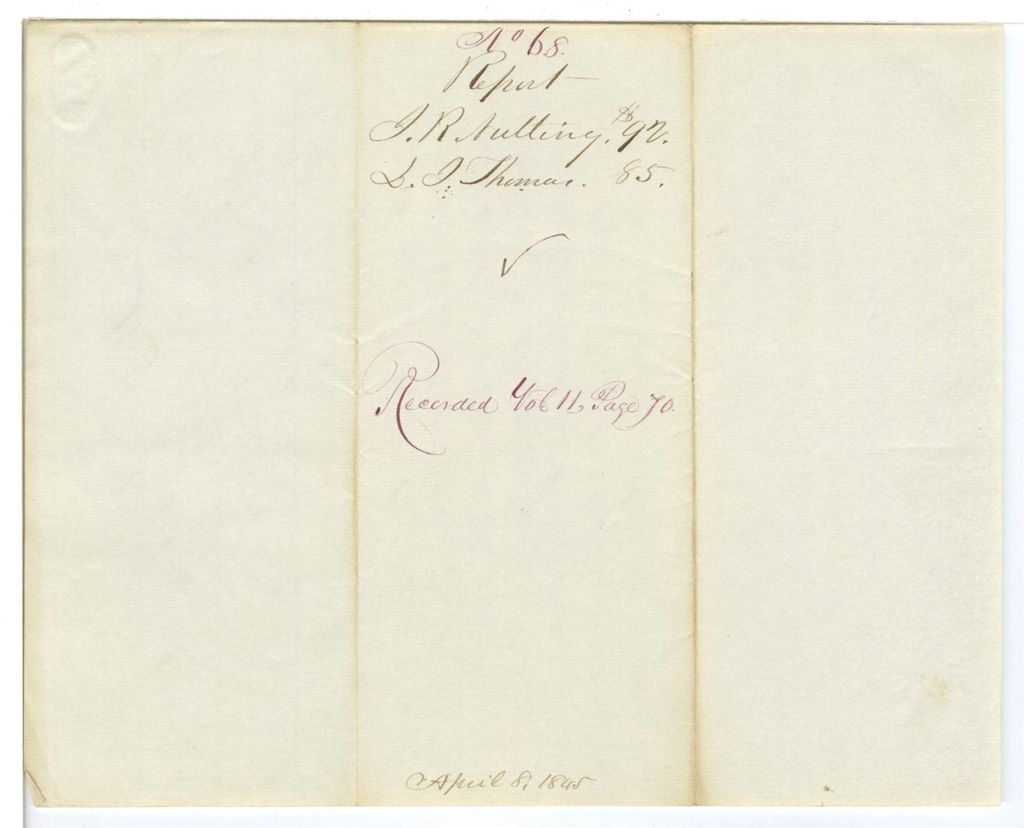 No 68.
Report
J. R. Nutting. $92.
L. J. Thomas. 85.
✓
Recorded Vol 11, Page 70.
April 8, 1845